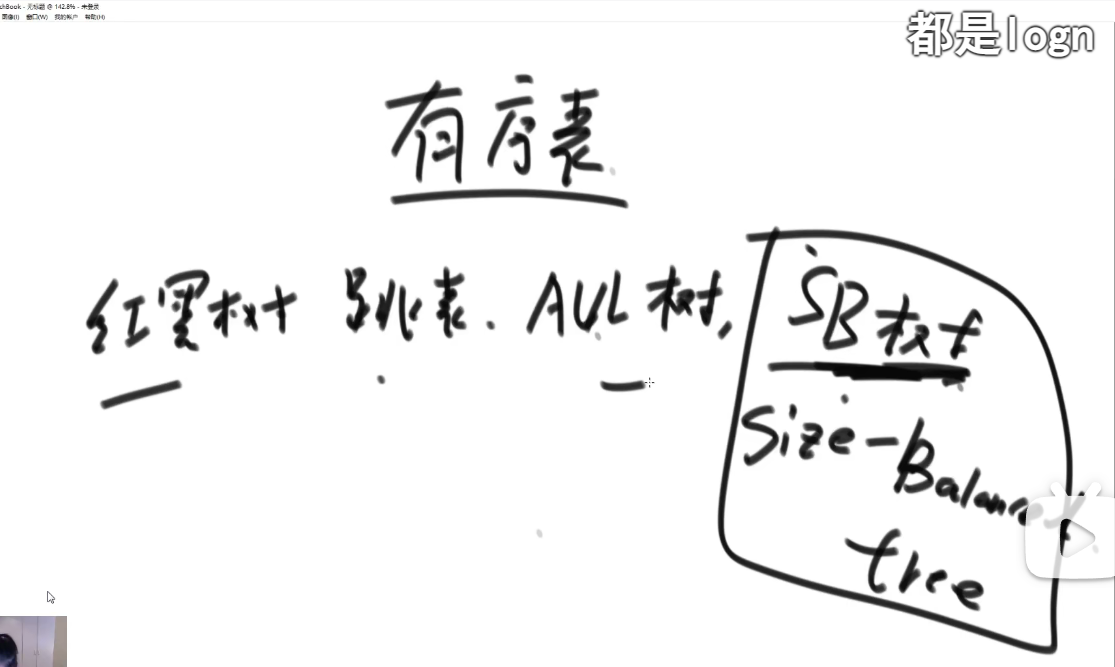 chBook - 无标题 @ 142.8% - 未登录
图像(I) 窗口(W) 我的帐户 帮助(H)
都是logn
有序表
红黑树 跳表. AVL树, SB树
Size-Balance
tree